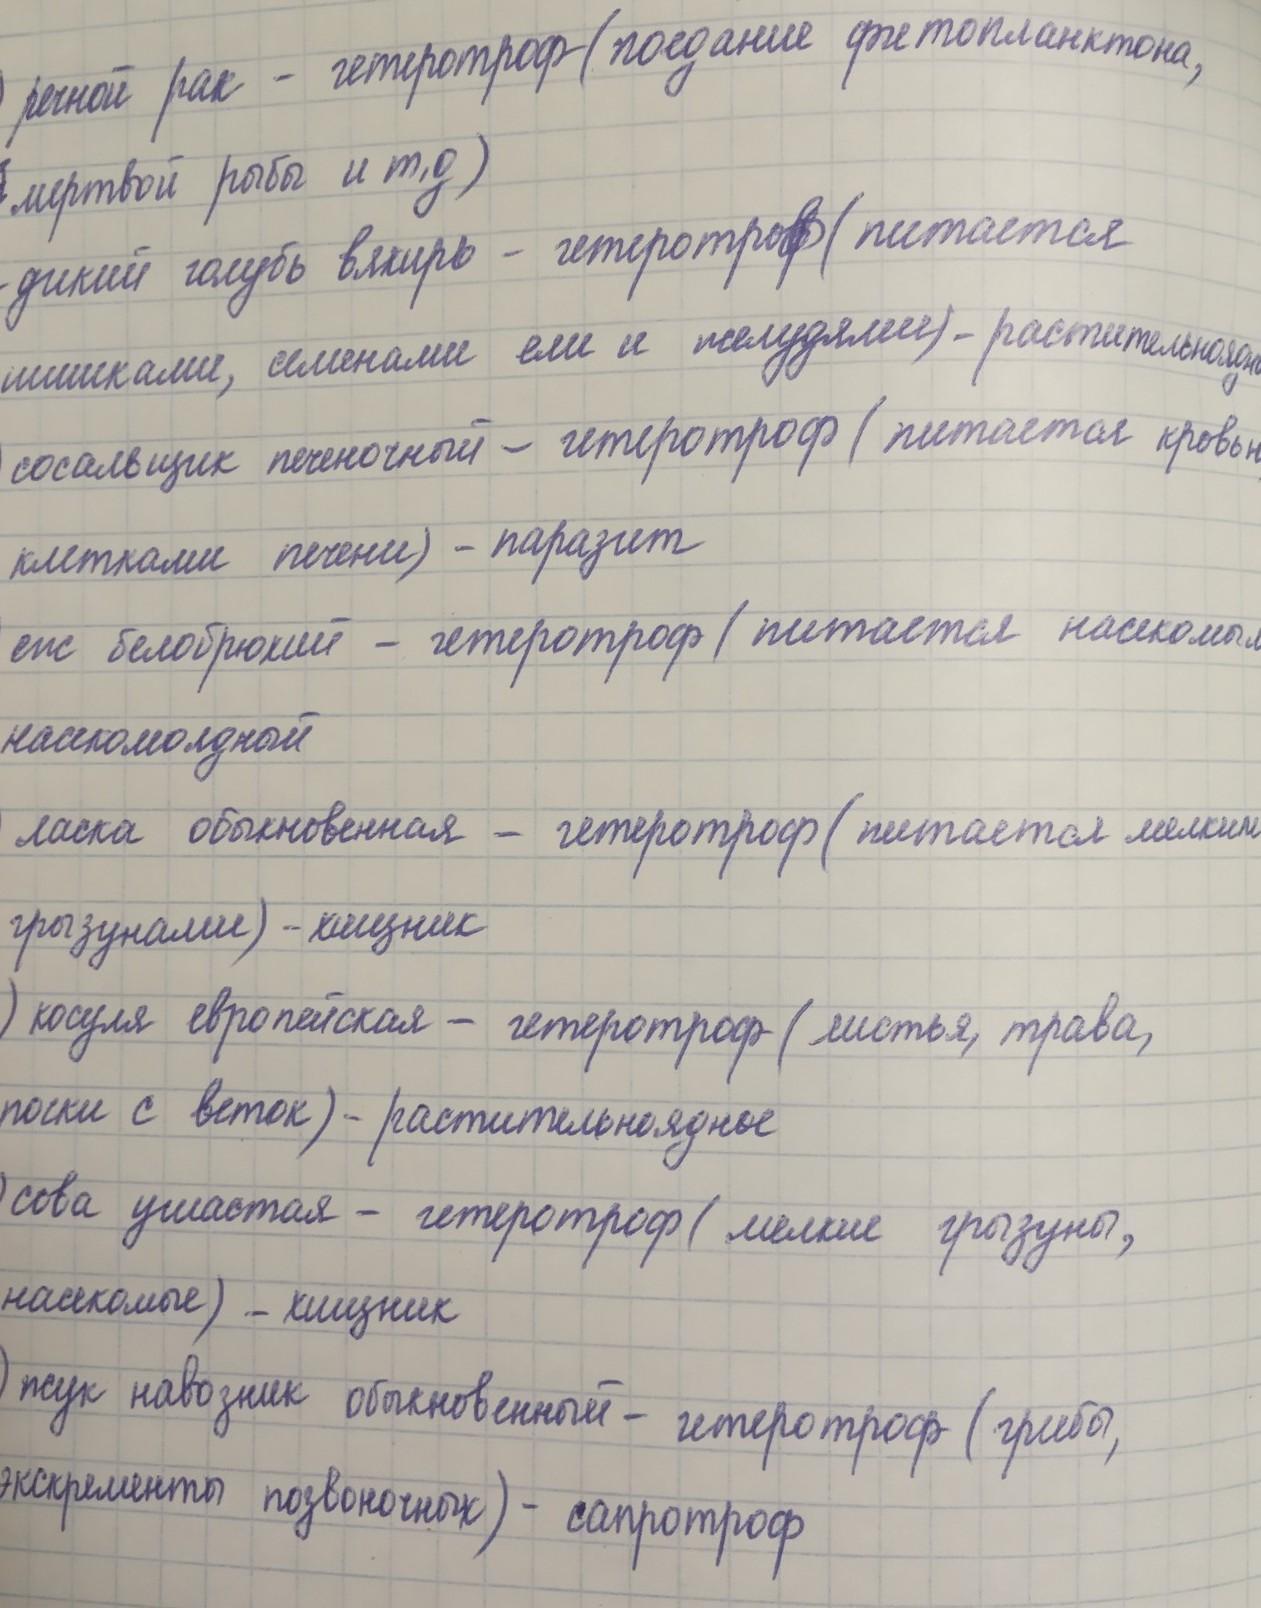 ) речной рак - гетеротроф (поедание фитопланктона,
мертвой рыбы и т.д)
- дикий голубь вяхирь - гетеротроф (питается
шишками, семенами ели и желудями) - растительноядно
) сосальщик печеночный - гетеротроф (питается кровью,
клетками печени) - паразит
белобрюхий - гетеротроф (питается насекомым
насекомоядный
) ласка обыкновенная - гетеротроф (питается мелким
грызунами) - хищник
) косуля европейская - гетеротроф (листья, трава,
почки с веток) - растительноядное
) сова ушастая - гетеротроф (мелкие грызуны,
насекомые) - хищник
) жук навозник обыкновенный - гетеротроф (грибы,
экскременты позвоночных) - сапротроф